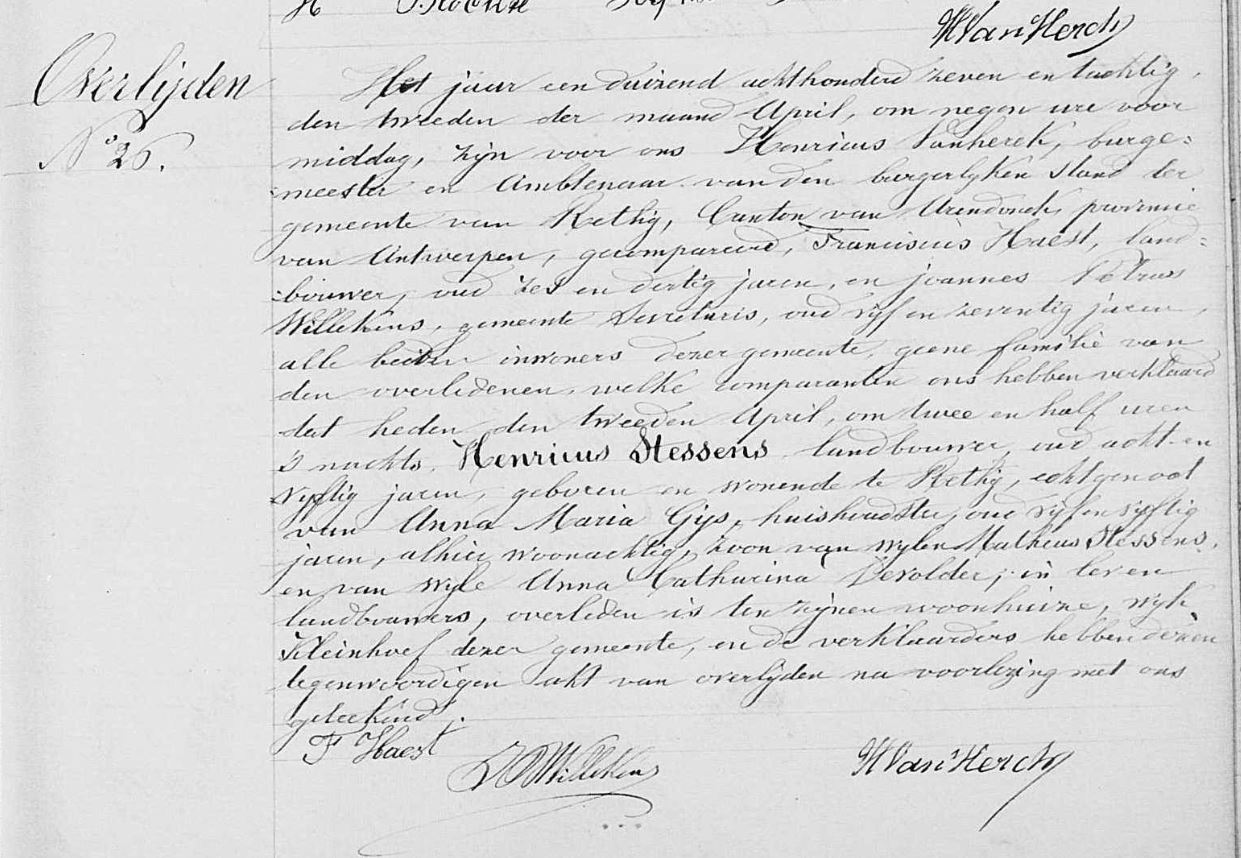 H
H Van Herck
Overlijden
N° 26.
Het jaar een duizend achthonderd zeven en tachtig,
den tweeden der maand April, om negen ure voor
middag, zijn voor ons Henricus Vanherck, burge=
=meester en Ambtenaar van den burgerlyken Stand der
gemeente van Rethy, Canton van Arendonck, provincie
van Antwerpen, gecompareerd, Franciscus Haest, land=
=bouwer, oud zes en dertig jaren, en joannes Petrus
Willekens, gemeente Secretaris, oud vyf en zeventig jaren,
alle beiden inwoners dezer gemeente, geene familie van
den overledenen, welke comparanten ons hebben verklaard
dat heden den tweeden April, om twee en half uren
's nachts, Henricus Stessens landbouwer, oud acht en
vyftig jaren, geboren en wonende te Rethy, echtgenoot
van Anna Maria Gys, huishoudster, oud vyf en vyftig
jaren, alhier woonachtig, zoon van wylen Matheus Stessens,
en van wyle Anna Catharina Devolder, in leven
landbouwers, overleden is ten zijnen woonhuize, wyk
Kleinhoef dezer gemeente, en de verklaarders hebben dezen
tegenwoordigen akt van overlijden na voorlezing met ons
geteekend.
F Haest
JP Willekens
H Van Herck